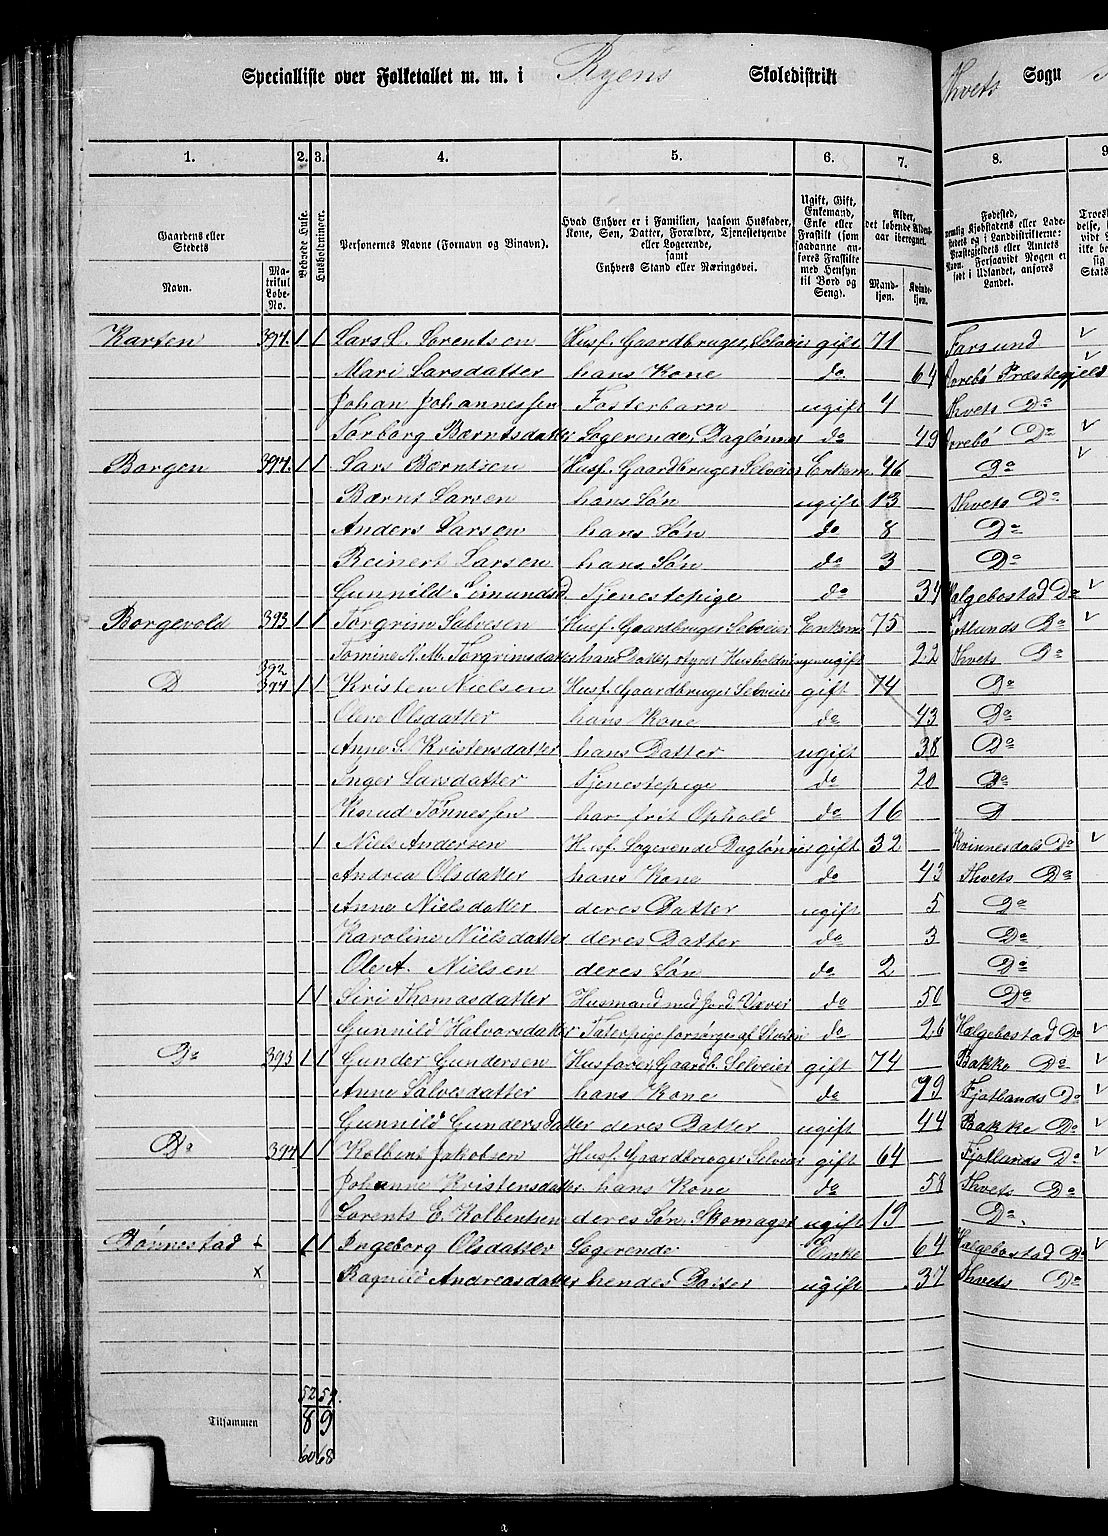 Specialliste over Folketallet m. m. i Ryens Skoledistrikt Kvets Sogn
1. 2. 3. 4. 5. 6. 7. 8. 9
Gaardens eller Stedets
Navn.
Matrikul Løbe-No.
Beboede Huse.
Husholdninger.
Personernes Navne (Fornavn og Binavn).
Hvad Enhver er i Familien, saasom Husfader, Kone, Søn, Datter, Forældre, Tjenestetyende eller Logerende, samt Enhvers Stand eller Næringsvei.
Ugift, Gift, Enkemand, Enke eller Fraskilt (som saadanne anføres Fraskilte med Hensyn til Bord og Seng).
Alder, det løbende Aldersaar iberegnet.
Mandkjøn. Kvindekjøn.
Fødested, nemlig Kjøbstadens eller Ladestedets og i Landdistrikterne: Præstegjeldets eller Amtets Navn. Forsaavidt Nogen er født i Udlandet, anføres Landet.
Karten 394. 1 1 Lars L. Lorentsen Husf. Gaardbruger, Selveier gift 71 Farsund
Mari Larsdatter hans Kone do 64 Præstegjeld
Johan Johannessen Fosterbarn ugift 4 Kvets Do
Torborg Bærntsdatter Logerende, Daglønner do 49 Do
Borgen 394. 1 1 Lars Bærntsen Husf. Gaardbruger Selveier Enkem 46 Do
Bærnt Larsen hans Søn ugift 13 Kvets Do
Anders Larsen hans Søn do 8 Do
Reinert Larsen hans Søn do 3 Do
Gunnild Simundsd. Tjenestepige do 34 Hægebostad Do
Borgevold 393 1 1 Torgrim Salvesen Husf. Gaardbruger Selveier Enkem 75 Fjotlands Do
Tomine N. M. Torgrimsdatter hans Datter, styrer Husholdningen ugift 22 Kvets Do
D 392 394 1 1 Kristen Nielsen Husf. Gaardbruger Selveier gift 74 Do
Olene Olsdatter hans Kone do 43 Do
Anne S. Kristensdatter hans Datter ugift 38 Do
Inger Larsdatter Tjenestepige do 20 Do
Knud Tønnessen har frit Ophold do 16 D
1 Niels Andersen Husf. Logerende Daglønner gift 32 Kvinnesdals Do
Andrea Olsdatter hans Kone do 43 Kvets Do
Anne Nielsdatter deres Datter ugift 5 Do
Karoline Nielsdatter deres Datter do 3 Do
Ole A. Nielsen deres Søn do 2 Do
1 1 Siri Thomasdatter Husmand med Jord. Væver do 50 Do
Gunnild Halvorsdatter Taterpige forsørges af Staten do 26 Hægebostad Do
Do 393 1 1 Gunder Gundersen Husfader, Gaardb. Selveier gift 74 Bakke Do
Anne Salvesdatter hans Kone do 79 Fjotlands Do
Gunnild Gundersdatter deres Datter ugift 44 Bakke Do
Do 394 1 1 Kolbent Jakobsen Husf. Gaardbruger Selveier gift 64 Fjotlands Do
Johanne Kristensdatter hans Kone do 58 Kvets Do
Lorents E. Kolbentsen deres Søn. Skomager ugift 19 Do.
Hønnestad + 1 1 Ingeborg Olsdatter Logerende Enke 64 Hægebostad Do
x Ragnild Andreasdatter hendes Datter ugift 37 Kvets Do
52 59.
Tilsammen 8 9
60 68